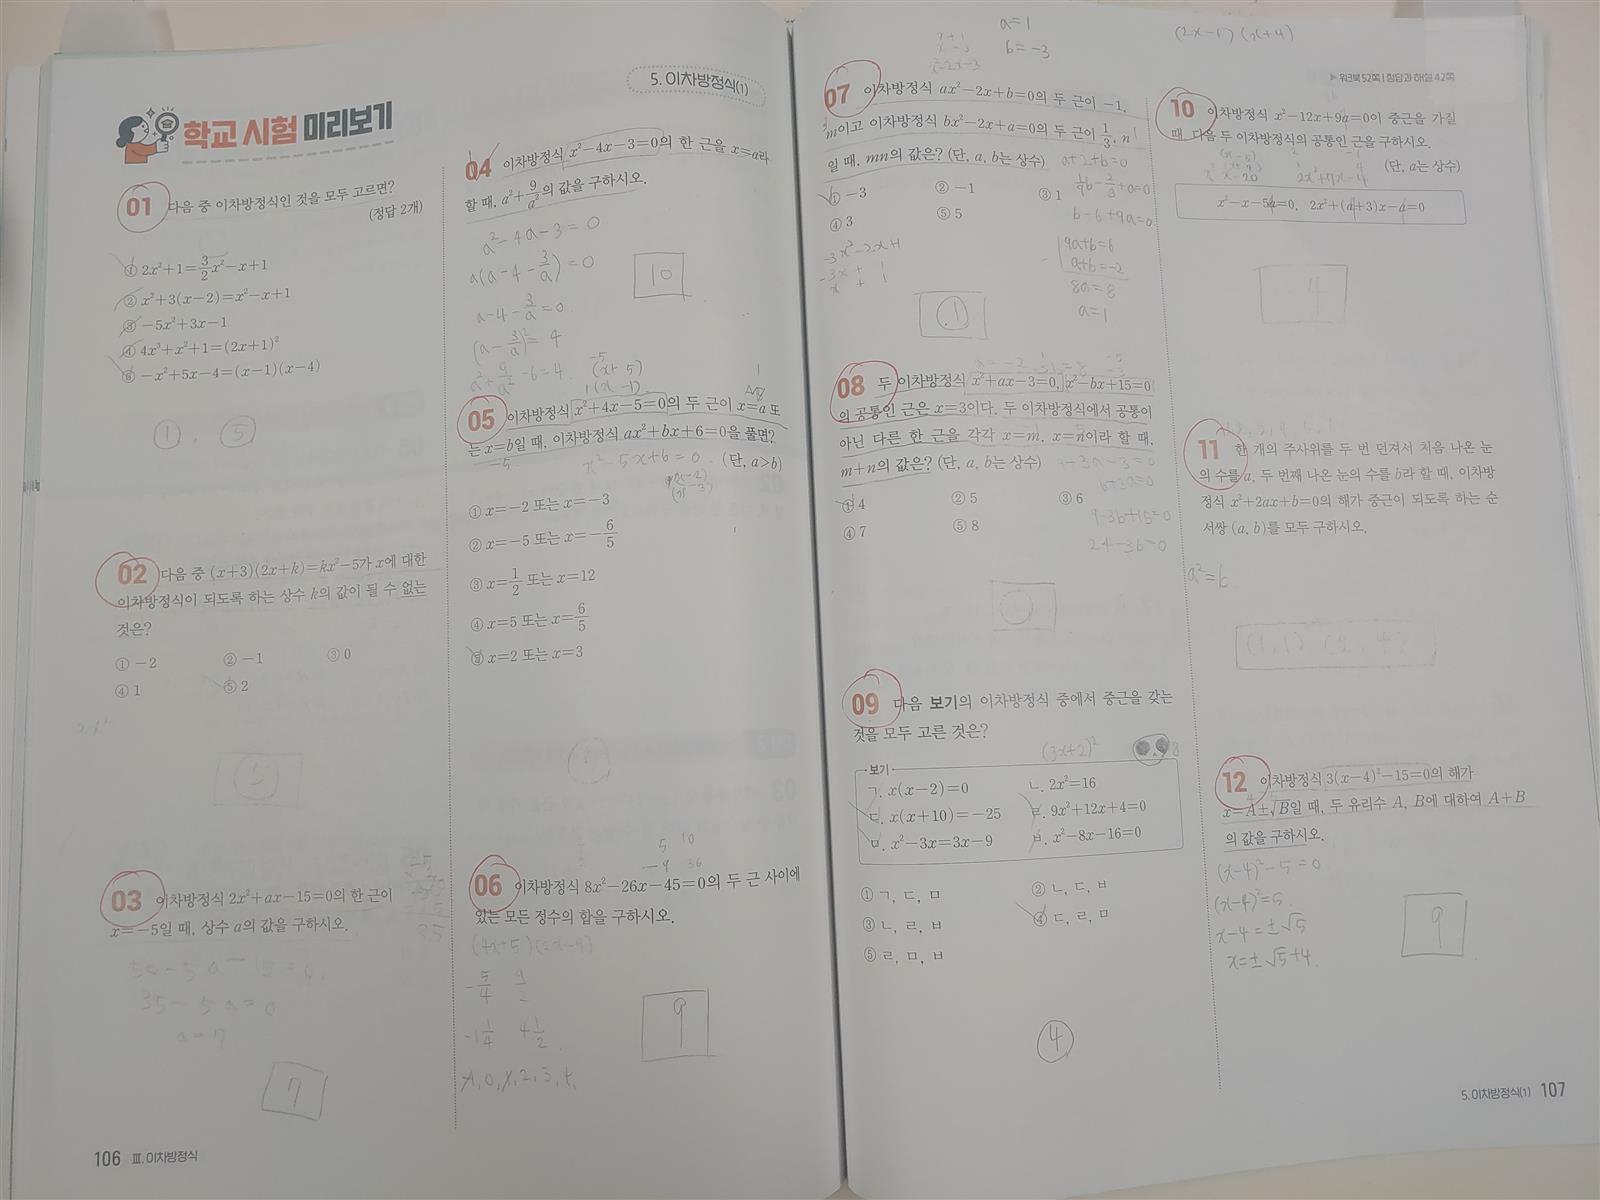 5. 이차방정식(1)
학교 시험 미리보기
01 다음 중 이차방정식인 것을 모두 고르면?
(정답 2개)
① 2x²+1=3/2x²-x+1
② x²+3(x-2)=x²-x+1
③ -5x²+3x-1
④ 4x³+x²+1=(2x+1)²
⑤ -x²+5x-4=(x-1)(x-4)
①, ⑤
02 다음 중 (x+3)(2x+k)=kx²-5가 x에 대한
이차방정식이 되도록 하는 상수 k의 값이 될 수 없는
것은?
① -2 ② -1 ③ 0
④ 1 ⑤ 2
⑤
03 이차방정식 2x²+ax-15=0의 한 근이
x=-5일 때, 상수 a의 값을 구하시오.
50-5a-15=0
35-5a=0
a=7
7
106 Ⅲ. 이차방정식
04 이차방정식 x²-4x-3=0의 한 근을 x=a라
할 때, a²+9/a²의 값을 구하시오.
a²-4a-3=0
a(a-4-3/a)=0
10
a-4-3/a=0
(a-3/a)²=4
a²+9/a²-6=4
-5 (x+5)
1 (x-1)
05 이차방정식 x²+4x-5=0의 두 근이 x=a 또
는 x=b일 때, 이차방정식 ax²+bx+6=0을 풀면?
-5 x²-5x+6=0 (단, a>b)
(x-2)
(x-3)
① x=-2 또는 x=-3
② x=-5 또는 x=-6/5
③ x=1/2 또는 x=12
④ x=5 또는 x=6/5
⑤ x=2 또는 x=3
5 10
-9 36
06 이차방정식 8x²-26x-45=0의 두 근 사이에
있는 모든 정수의 합을 구하시오.
(4x+5)(2x-9)
-5/4 9/2
-1 1/4 4 1/2
9
-1, 0, 1, 2, 3, 4,
a=1
b=-3
07 이차방정식 ax²-2x+b=0의 두 근이 -1,
m이고 이차방정식 bx²-2x+a=0의 두 근이 1/3, n
일 때, mn의 값은? (단, a, b는 상수)
a+2+b=0
① -3 ② -1 ③ 1
④ 3 ⑤ 5
1/9b-2/3+a=0
b-6+9a=0
-3x²-2x+1
9a+b=6
a+b=-2
8a=8
a=1
①
08 두 이차방정식 x²+ax-3=0, x²-bx+15=0
의 공통인 근은 x=3이다. 두 이차방정식에서 공통이
아닌 다른 한 근을 각각 x=m, x=n이라 할 때,
m+n의 값은? (단, a, b는 상수)
① 4 ② 5 ③ 6
④ 7 ⑤ 8
9-3b+15=0
24-3b=0
09 다음 보기의 이차방정식 중에서 중근을 갖는
것을 모두 고른 것은?
(3x+2)²
보기
ㄱ. x(x-2)=0 ㄴ. 2x²=16
ㄷ. x(x+10)=-25 ㄹ. 9x²+12x+4=0
ㅁ. x²-3x=3x-9 ㅂ. x²-8x-16=0
① ㄱ, ㄷ, ㅁ ② ㄴ, ㄷ, ㅂ
③ ㄴ, ㄹ, ㅂ ④ ㄷ, ㄹ, ㅁ
⑤ ㄹ, ㅁ, ㅂ
④
(2x-1)(x+4)
▶ 워크북 52쪽 | 정답과 해설 42쪽
10 이차방정식 x²-12x+9a=0이 중근을 가질
때, 다음 두 이차방정식의 공통인 근을 구하시오.
(단, a는 상수)
2x²+7x-4
x²-x-5a=0, 2x²+(a+3)x-a=0
-4
11 한 개의 주사위를 두 번 던져서 처음 나온 눈
의 수를 a, 두 번째 나온 눈의 수를 b라 할 때, 이차방
정식 x²+2ax+b=0의 해가 중근이 되도록 하는 순
서쌍 (a, b)를 모두 구하시오.
a²=b
(1, 1) (2, 4)
12 이차방정식 3(x-4)²-15=0의 해가
x=A±√B일 때, 두 유리수 A, B에 대하여 A+B
의 값을 구하시오.
(x-4)²-5=0
(x-4)²=5
x-4=±√5
x=±√5+4
9
5. 이차방정식(1) 107